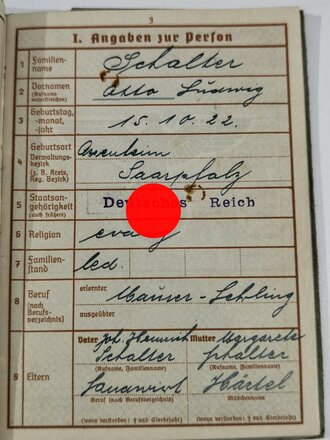 3
I. Angaben zur Person
1 Familien-
name
Schalter
2 Vornamen
(Rufname
unterstreichen)
Otto Ludwig
3 Geburtstag,
-monat,
-jahr
15. 10. 22.
4 Geburtsort
Verwaltungs-
bezirk
(z. B. Kreis,
Reg. Bezirk)
Assenheim
Saarpfalz
5 Staatsan-
gehörigkeit
(auch frühere)
Deutsches Reich
6 Religion
evang
7 Familien-
stand
led.
8 Beruf
(nach
Berufs-
verzeichnis)
erlernter
Maurer-Lehrling
ausgeübter
9 Eltern
Vater Joh. Heinrich
Schalter
(Rufname, Familienname)
Landwirt
Beruf (nach Berufsverzeichnis)
(wenn verstorben: † und Sterbejahr)
Mutter Margarete
Schalter
(Rufname, Familienname)
Härtel
Mädchenname
(wenn verstorben: † und Sterbejahr)